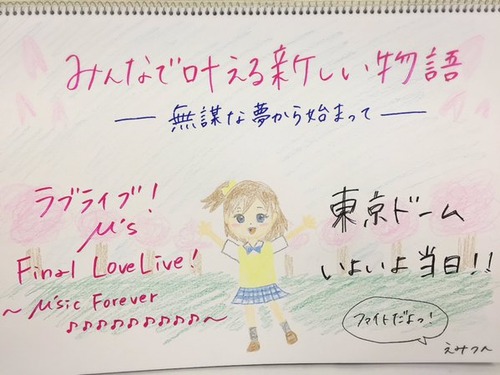 みんなで叶える新しい物語
― 無謀な夢から始まって ―
ラブライブ!
μ's
Final LoveLive!
〜μ'sic Forever
♪♪♪♪♪♪♪♪♪〜
東京ドーム
いよいよ当日!!
ファイトだよっ!
えみつん